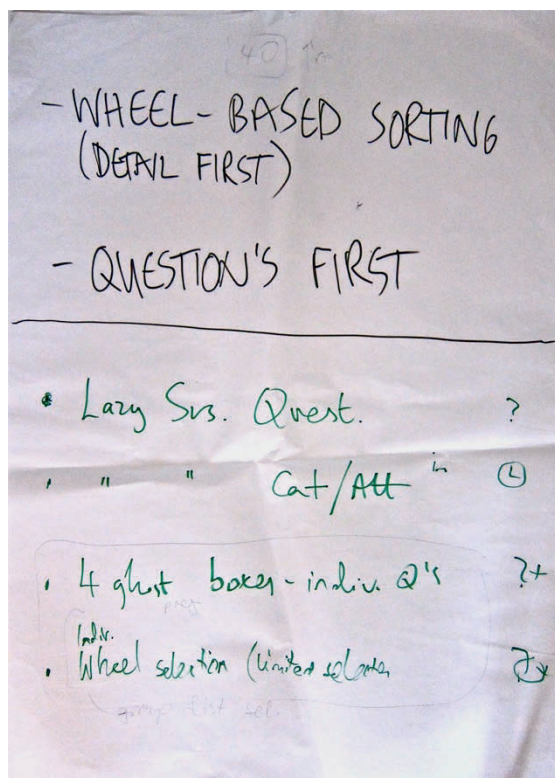 40
- WHEEL-BASED SORTING
(DETAIL FIRST)
- QUESTION'S FIRST
• Lazy Sus. Quest. ?
• " " Cat/Att in L
• 4 ghost boxes - indiv. Q's ?+
Indiv.
• Wheel selection (limited